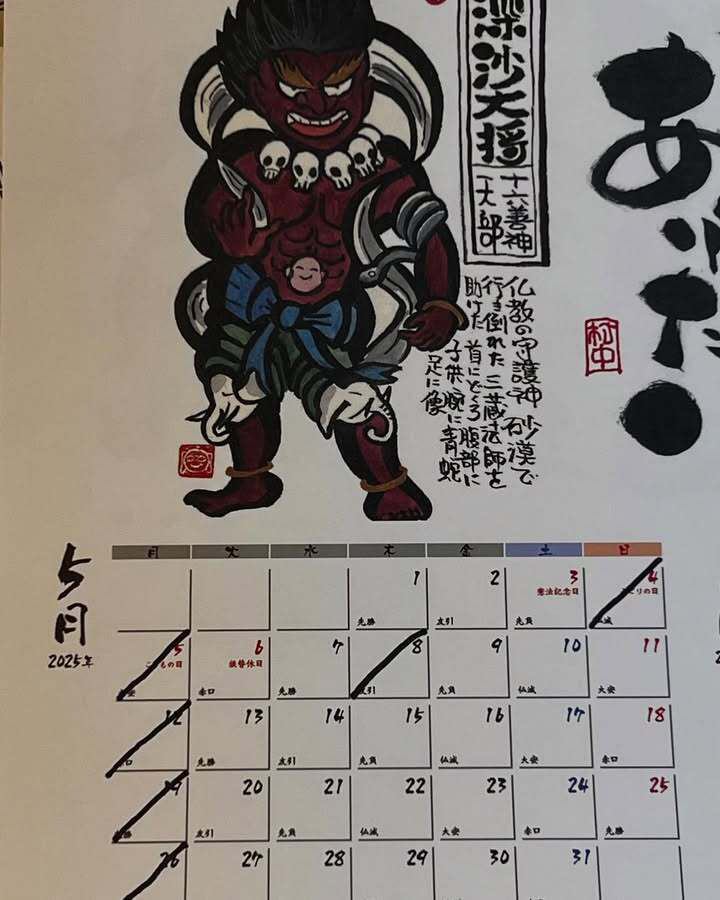 深沙大将
十六善神
(天部
仏教の守護神 砂漠で
行き倒れた 三蔵法師を
助けた 首にどくろ 腹部に
子供 腕に青蛇
足に像
あ
松中
5月
2025年
月 火 水 木 金 土 日
1 2 3 4
憲法記念日 みどりの日
先勝 友引 先負 仏滅
5 6 7 8 9 10 11
こどもの日 振替休日
大安 赤口 先勝 友引 先負 仏滅 大安
12 13 14 15 16 17 18
赤口 先勝 友引 先負 仏滅 大安 赤口
19 20 21 22 23 24 25
先勝 友引 先負 仏滅 大安 赤口 先勝
26 27 28 29 30 31